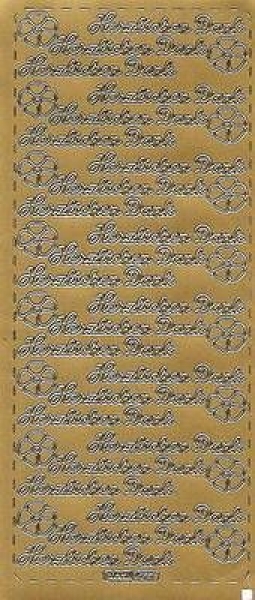 Herzlichen Dank
Herzlichen Dank
Herzlichen Dank
Herzlichen Dank
Herzlichen Dank
Herzlichen Dank
Herzlichen Dank
Herzlichen Dank
Herzlichen Dank
Herzlichen Dank
Herzlichen Dank
Herzlichen Dank
Herzlichen Dank
Herzlichen Dank
Herzlichen Dank
Herzlichen Dank
Herzlichen Dank
Herzlichen Dank
Herzlichen Dank
Herzlichen Dank
Herzlichen Dank
Herzlichen Dank
Herzlichen Dank
Herzlichen Dank